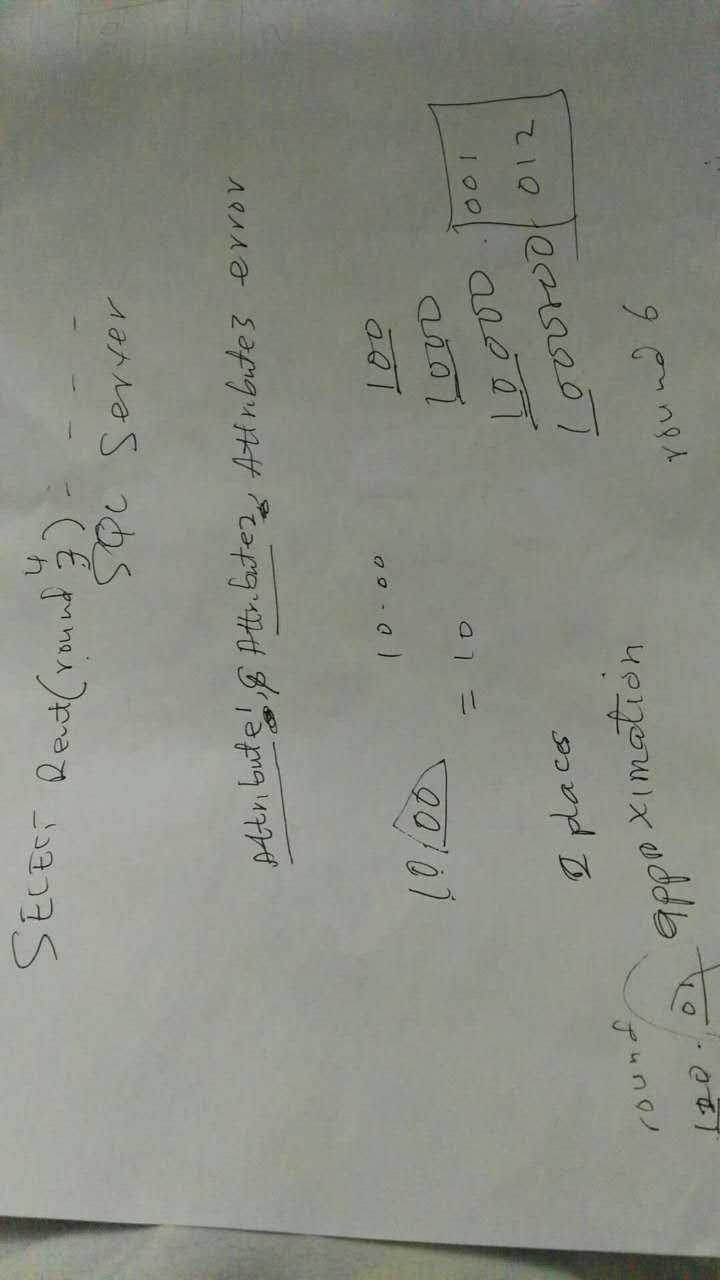 SELECT Rent(round 4
SQL Server
Attribute1, & Attribute2, Attribute3 error
10.00 10.00 100
= 10 1000
10 000.001
1000000.012
2 places
approximation round 6
round
120.01